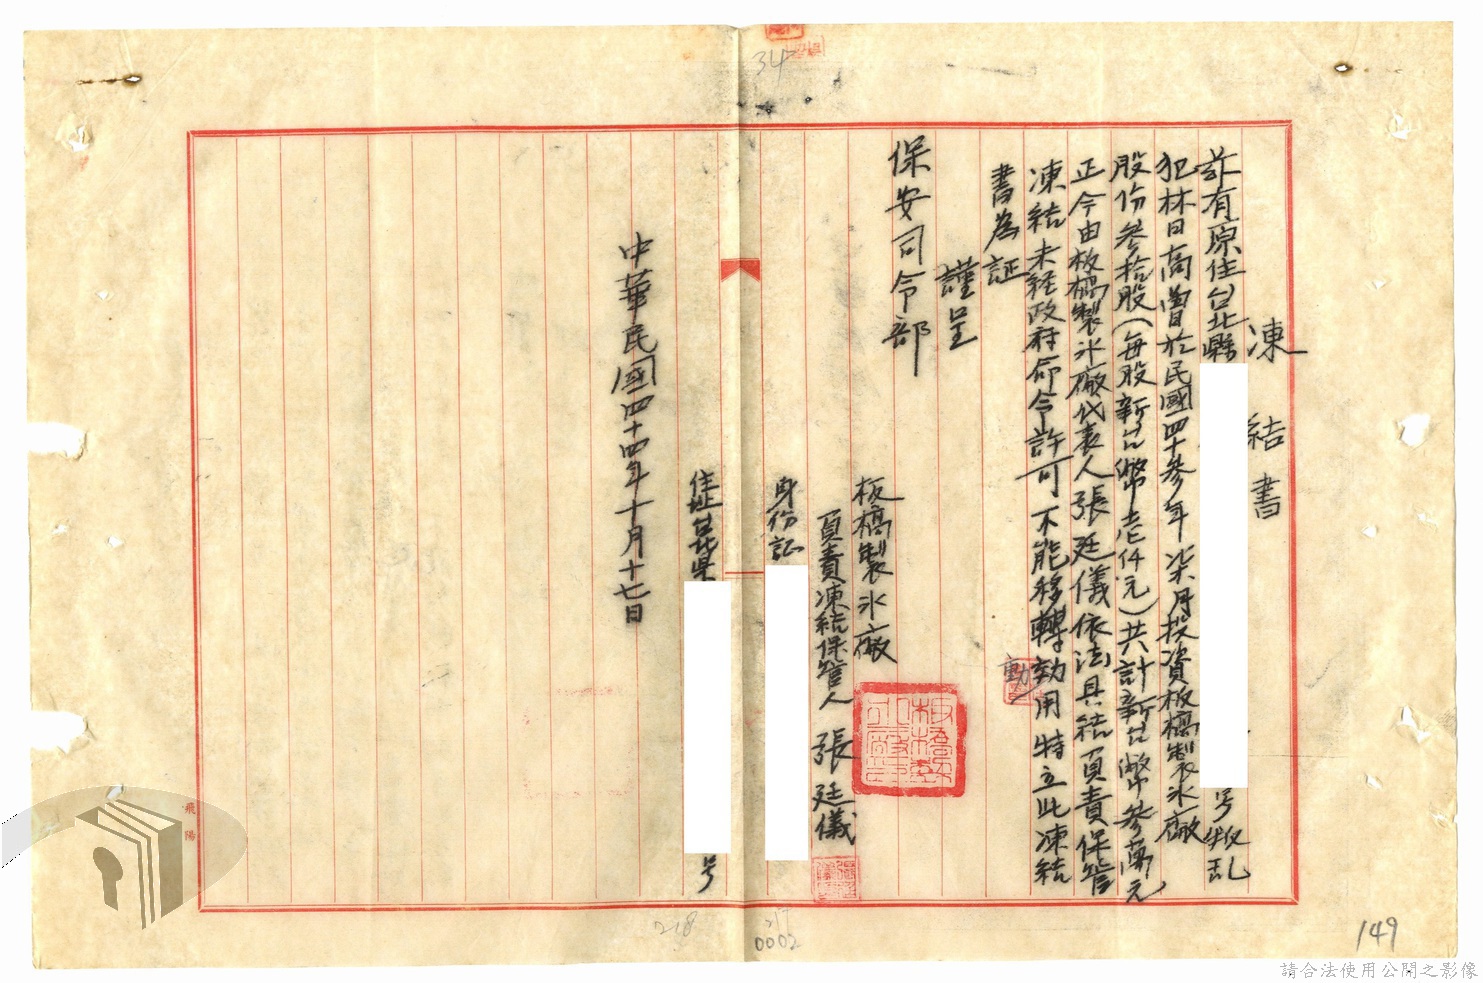 凍結書
茲有原住台北縣
号叛乱
犯林日高曾於民國四十參年柒月投資板橋製氷廠
股份參拾股(每股新台幣壱仟元)共計新台幣參萬元
正今由板橋製氷廠代表人張廷儀依法具結負責保管
凍結未経政府命令許可不能移轉動用特立此凍結
書為証
謹呈
保安司令部
板橋製氷廠
負責凍結保管人 張廷儀
身份証
住址台北県
号
中華民國四十四年十月十七日
飛陽
34
218
217
0002
149
請合法使用公開之影像